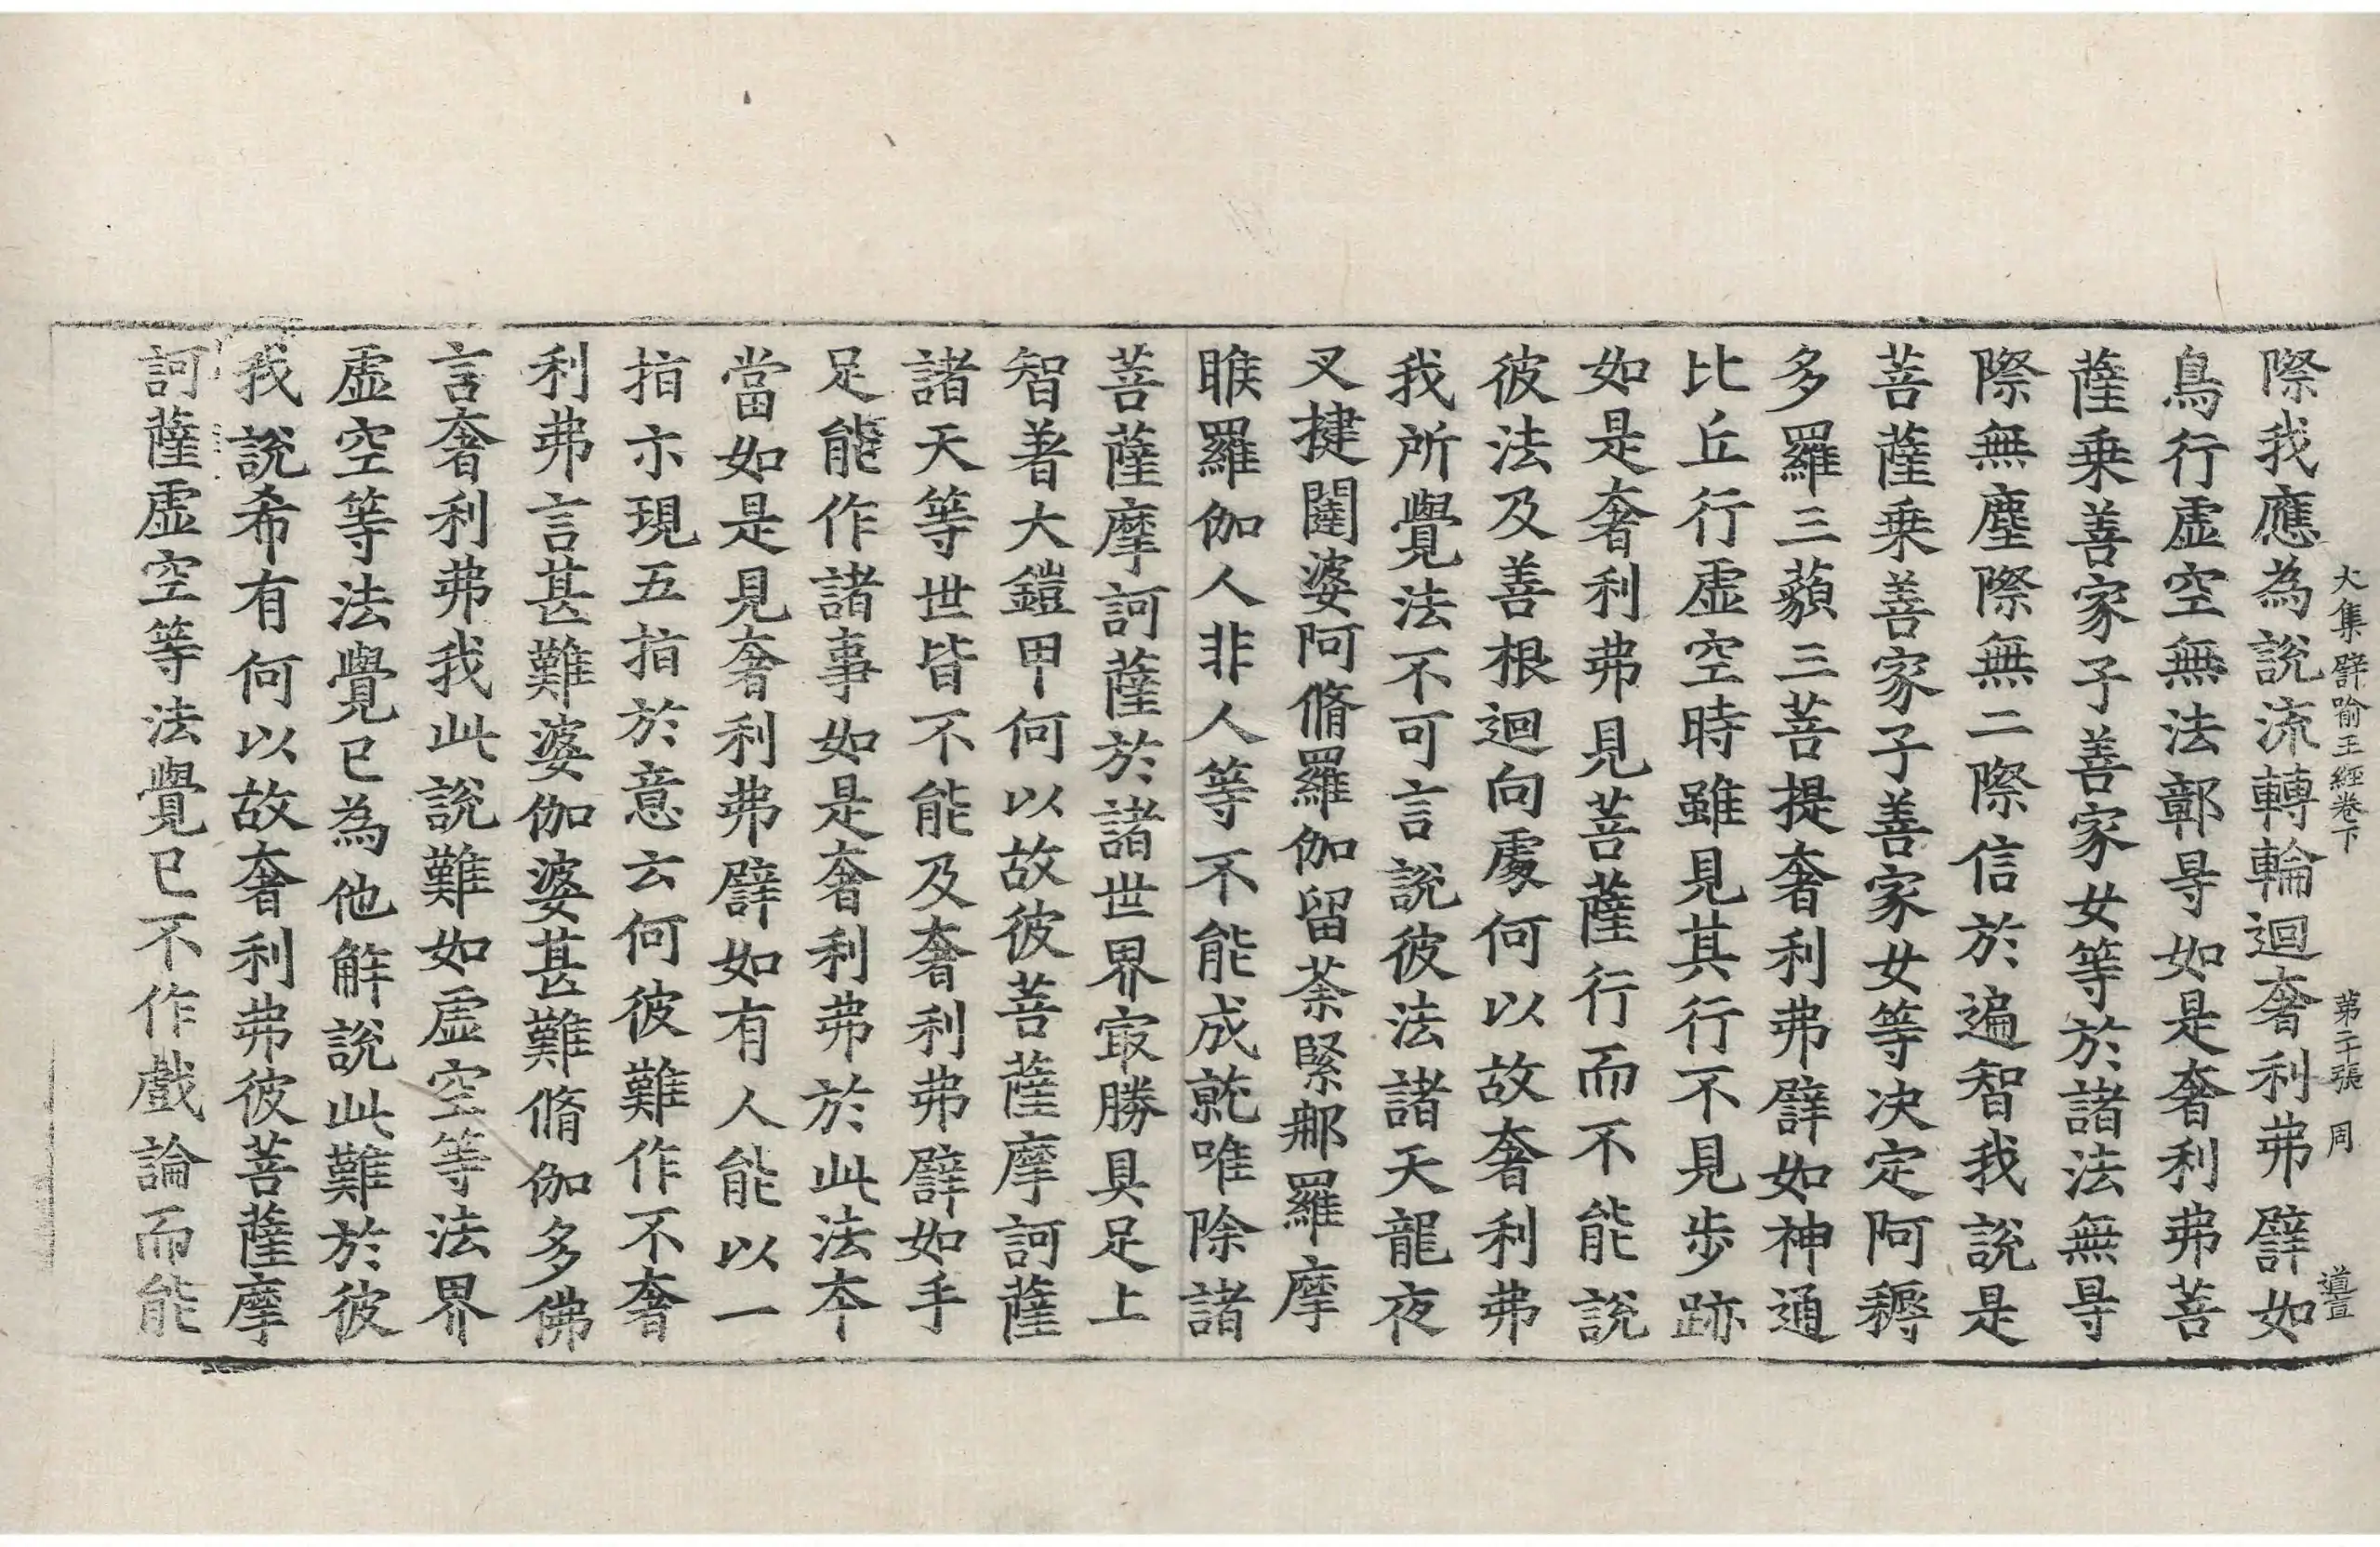 大集譬喻王經卷下 第二十張 周 道亘
際我應為說流轉輪迴奢利弗譬如
鳥行虛空無法鄣㝵如是奢利弗菩
薩乗善家子善家女等於諸法無㝵
際無塵際無二際信於遍智我說是
菩薩乗善家子善家女等决定阿耨
多羅三藐三菩提奢利弗譬如神通
比丘行虛空時雖見其行不見步跡
如是奢利弗見菩薩行而不能說
彼法及善根迴向處何以故奢利弗
我所覺法不可言說彼法諸天龍夜
叉揵闥婆阿脩羅伽留荼緊那羅摩
睺羅伽人非人等不能成就唯除諸
菩薩摩訶薩於諸世界冣勝具足上
智著大鎧甲何以故彼菩薩摩訶薩
諸天等世皆不能及奢利弗譬如手
足能作諸事如是奢利弗於此法夲
當如是見奢利弗譬如有人能以一
指示現五指於意云何彼難作不奢
利弗言甚難婆伽婆甚難脩伽多佛
言奢利弗我此說難如虛空等法界
虛空等法覺已為他解說此難於彼
我說希有何以故奢利弗彼菩薩摩
訶薩虛空等法覺已不作戲論而能